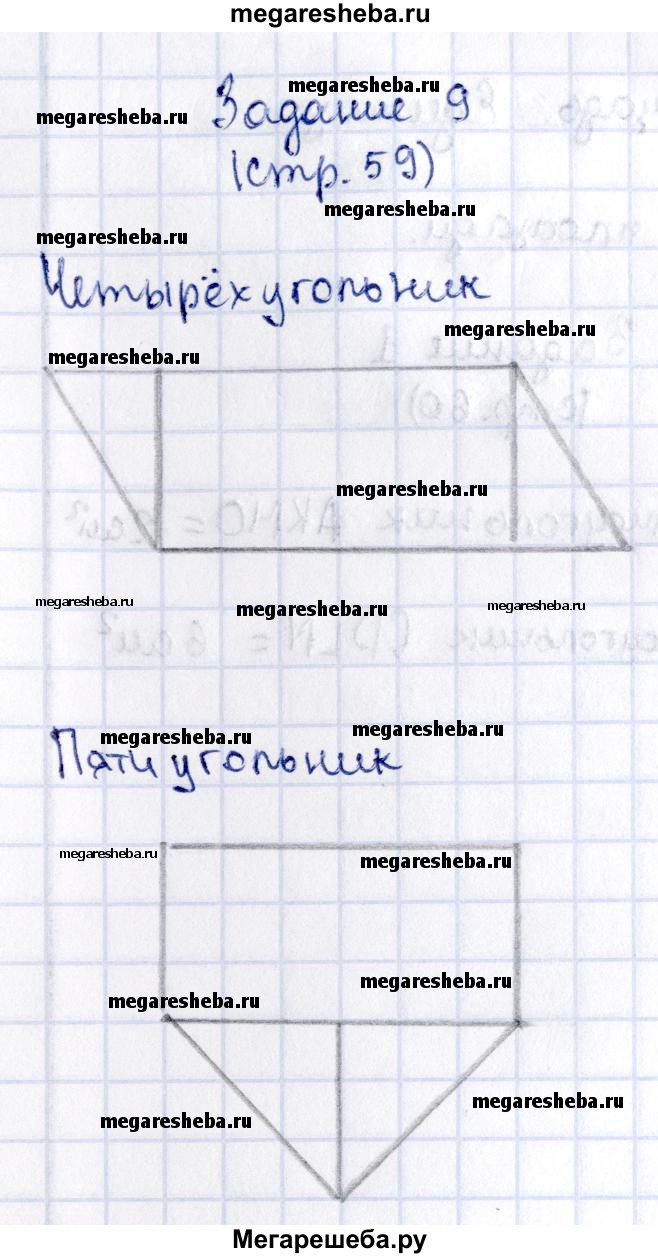 megaresheba.ru
megaresheba.ru
megaresheba.ru
Задание 9
(стр. 59)
megaresheba.ru
megaresheba.ru
Четырёхугольник
megaresheba.ru
megaresheba.ru
megaresheba.ru
megaresheba.ru
megaresheba.ru
megaresheba.ru
megaresheba.ru
megaresheba.ru
Пятиугольник
megaresheba.ru
megaresheba.ru
megaresheba.ru
megaresheba.ru
megaresheba.ru
megaresheba.ru
Мегарешеба.ру